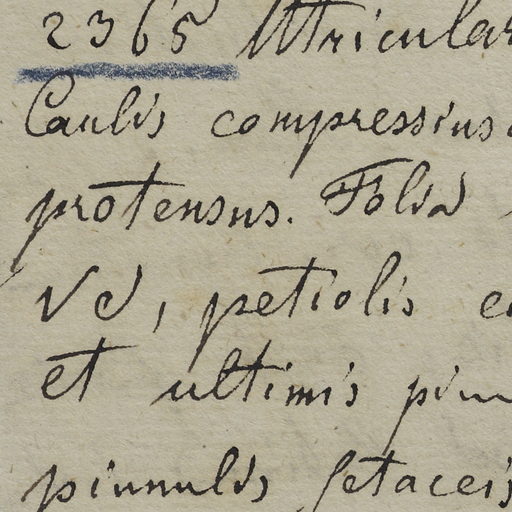 2365 Utricular
Caulis compressius
protensus. Folia
va, petiolis
et ultimis pinn
pinnulis setaceis